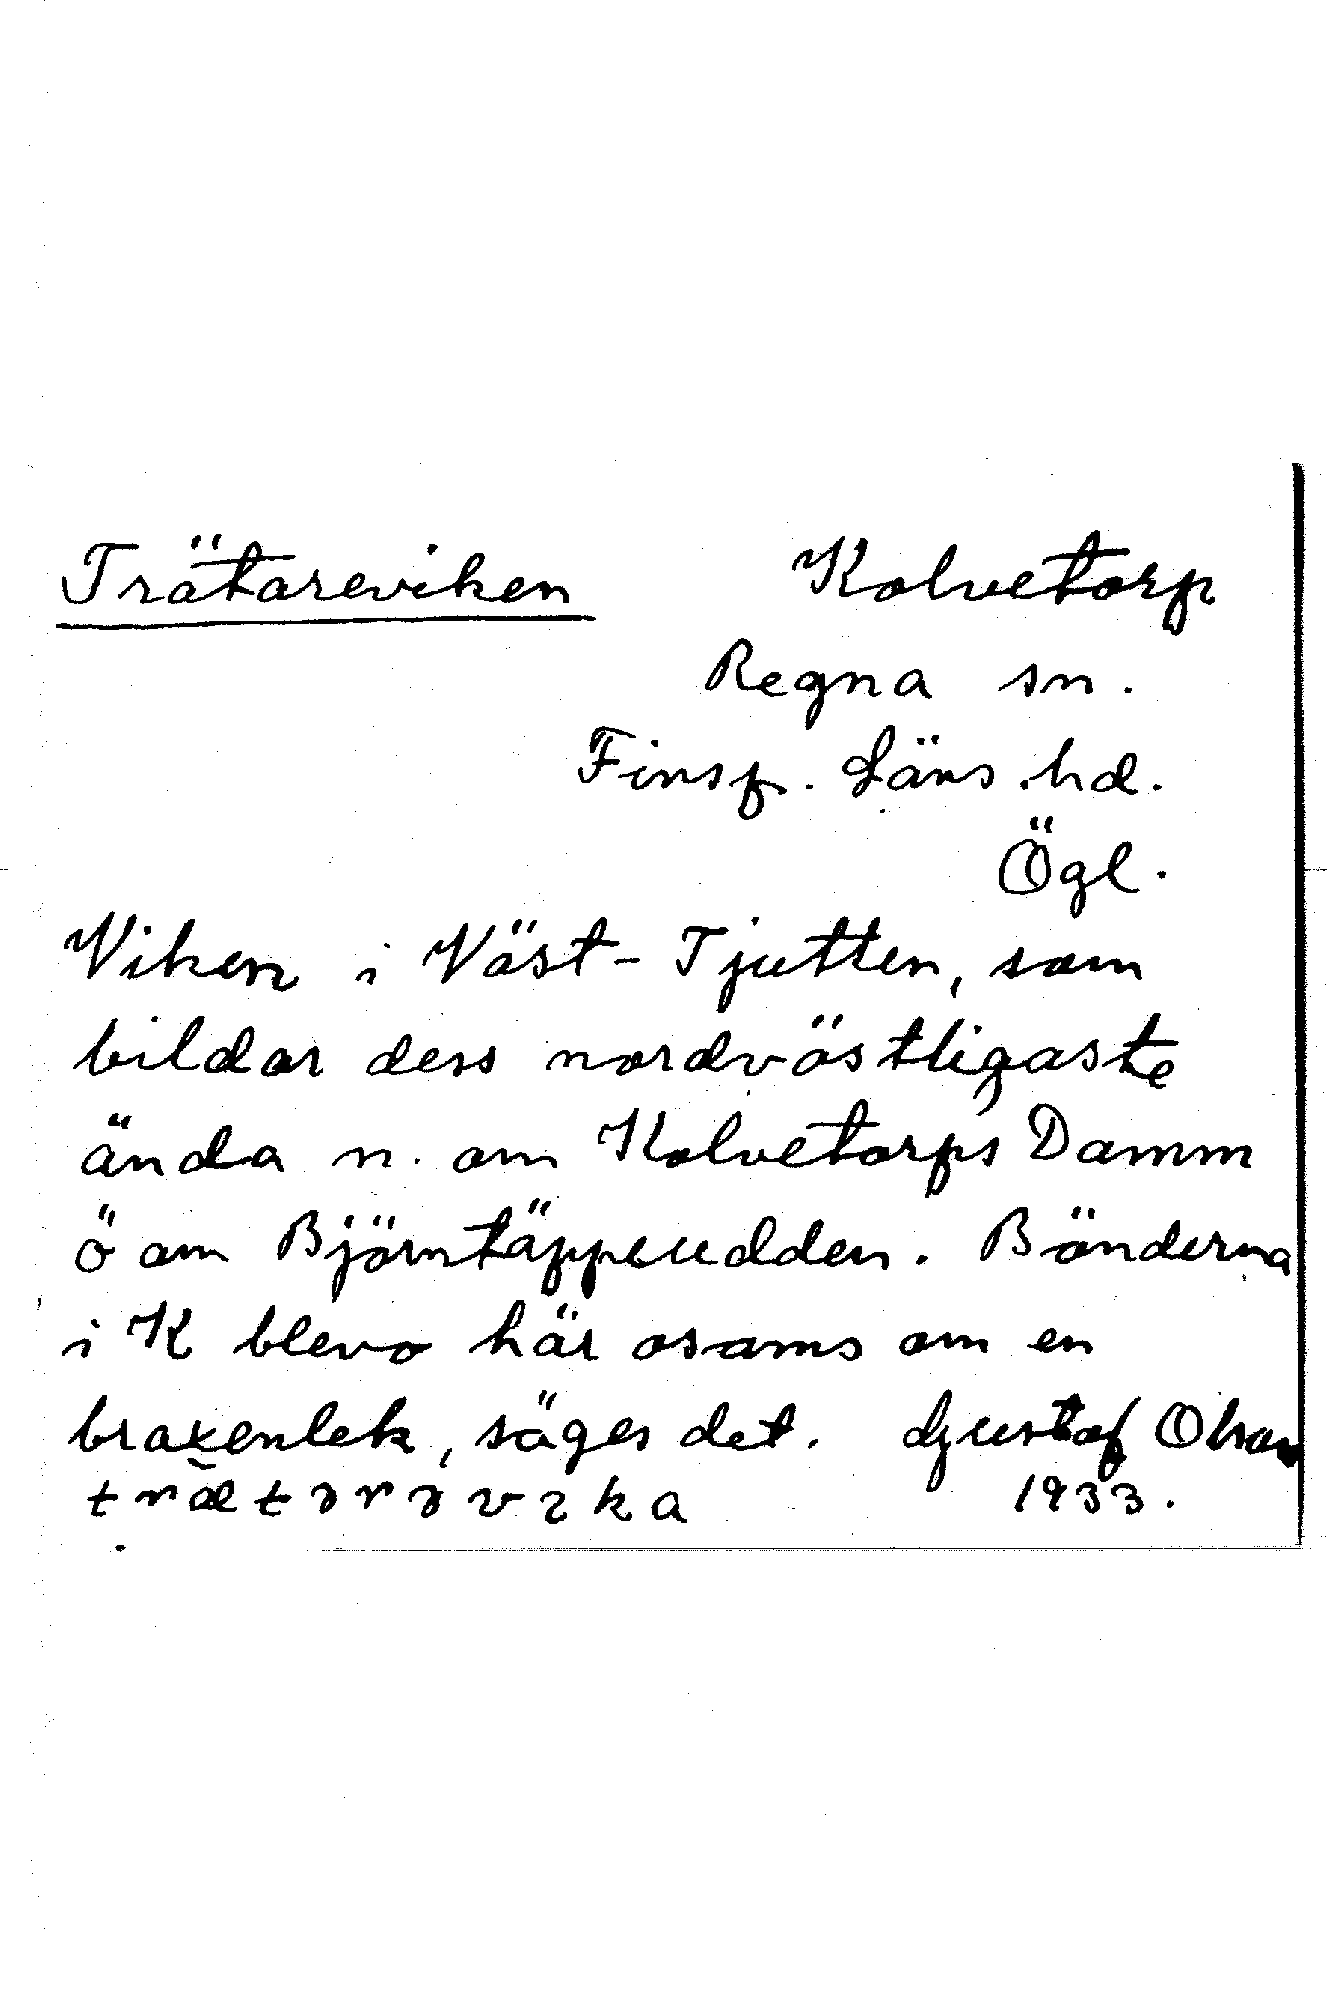 Trätareviken Kolvetorp
Regna sn.
Finsp. Läns hd.
Ögl.
Viken i Väst-Tjutten, som
bildar dess nordvästligaste
ända n. om Kolvetorps Damm
ö om Björntäppeudden. Bönderna
i K blevo här osams om en
braxenlek, säges det. Gustaf Olson
1933.